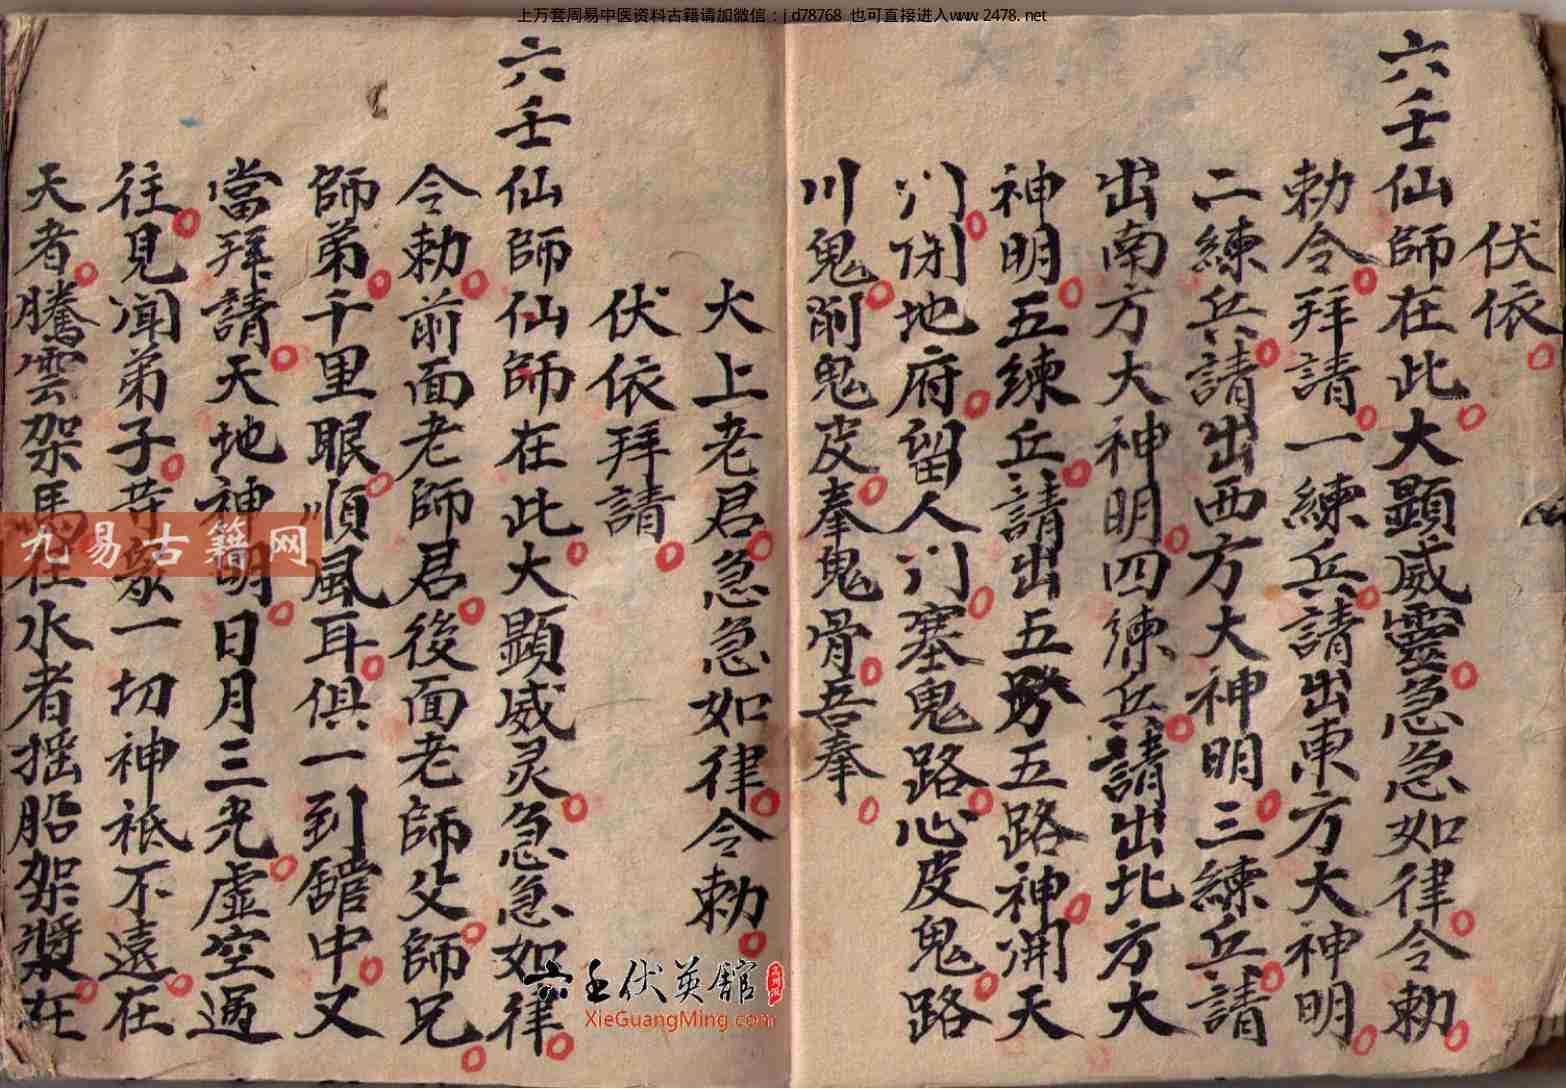 上万套周易中医资料古籍请加微信：jd78768 也可直接进入www.2478.net
伏依
六壬仙師在此大顯威靈急急如律令勅
勅令拜請一練兵請出東方大神明
二練兵請出西方大神明三練兵請
出南方大神明四練兵請出北方大
神明五練兵請出五路神開天
門閉地府留人门塞鬼路心皮鬼路
川鬼削鬼皮奉鬼骨吾奉
大上老君急急如律令勅
伏依拜請
六壬仙師仙師在此大顯威灵急急如律
令勅前面老師君後面老師父師兄
師弟千里眼順風耳俱一到舘中又
當拜請天地神明日月三光虛空過
往見闻弟子䒭衆一切神祗不遠在
天者騰雲架馬在水者揺船架槳在
九易古籍网
六壬伏英舘
XieGuangMing.com